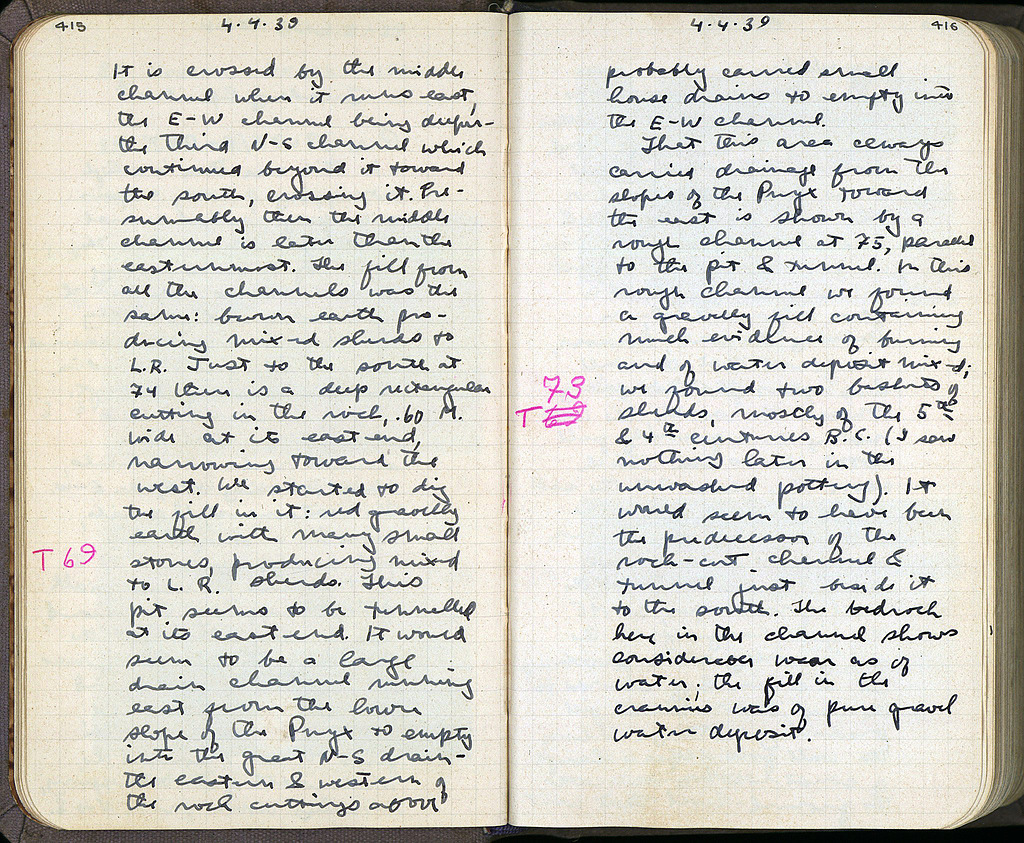 415
4·4·39
It is crossed by the middle
channel when it runs east,
the E-W channel being deeper –
the third N-S channel which
continued beyond it toward
the south, crossing it. Pre-
sumably then the middle
channel is later than the
easternmost. The fill from
all the channels was the
same: brown earth pro-
ducing mixed sherds to
L.R. Just to the south at
74 there is a deep rectangular
cutting in the rock, .60 M.
wide at its east end,
narrowing toward the
west. We started to dig
the fill in it: red gravelly
earth with many small
T 69
stones, producing mixed
to L. R. sherds. This
pit seems to be tunnelled
at its east end. It would
seem to be a large
drain channel running
east from the lower
slope of the Pnyx to empty
into the great N-S drain –
the eastern & western of
the rock cuttings above
4·4·39
416
probably carried small
house drains to empty into
the E-W channel.
That this area always
carried drainage from the
slopes of the Pnyx toward
the east is shown by a
rough channel at 75, parallel
to the pit & tunnel. In this
rough channel we found
a gravelly fill containing
much evidence of burning
and of water deposit mixed;
73
we found two baskets of
T
sherds, mostly of the 5th
& 4th centuries B.C. (I saw
nothing later in the
unwashed pottery). It
would seem to have been
the predecessor of the
rock-cut channel &
tunnel just beside it
to the south. The bedrock
here in the channel shows
considerable wear as of
water; the fill in the
crannies was of pure gravel
water deposit.